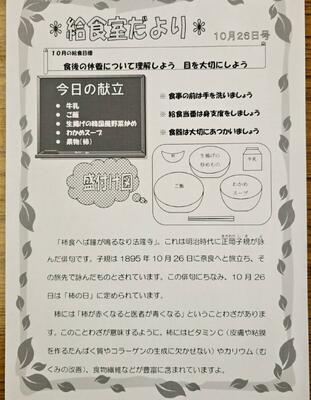 ＊給食室だより＊
10月26日号
10月の給食目標
食後の休養について理解しよう 目を大切にしよう
今日の献立
牛乳
ご飯
生揚げの韓国風野菜炒め
わかめスープ
果物(柿)
※ 食事の前は手を洗いましょう
※ 給食当番は身支度をしましょう
※ 食器は大切にあつかいましょう
盛付け図
生揚げの
炒めもの
牛乳
ご飯
わかめ
スープ
「柿食へば鐘が鳴るなり法隆寺」。これは明治時代に正岡子規が詠
んだ俳句です。子規は1895年10月26日に奈良へと旅立ち、そ
の旅先で詠んだものとされています。この俳句にちなみ、10月26
日は「柿の日」に定められています。
柿には「柿が赤くなると医者が青くなる」ということわざがありま
す。このことわざが意味するように、柿にはビタミンC（皮膚や粘膜
を作るたんぱく質やコラーゲンの生成に欠かせない）やカリウム（む
くみの改善）、食物繊維などが豊富に含まれていますよ。